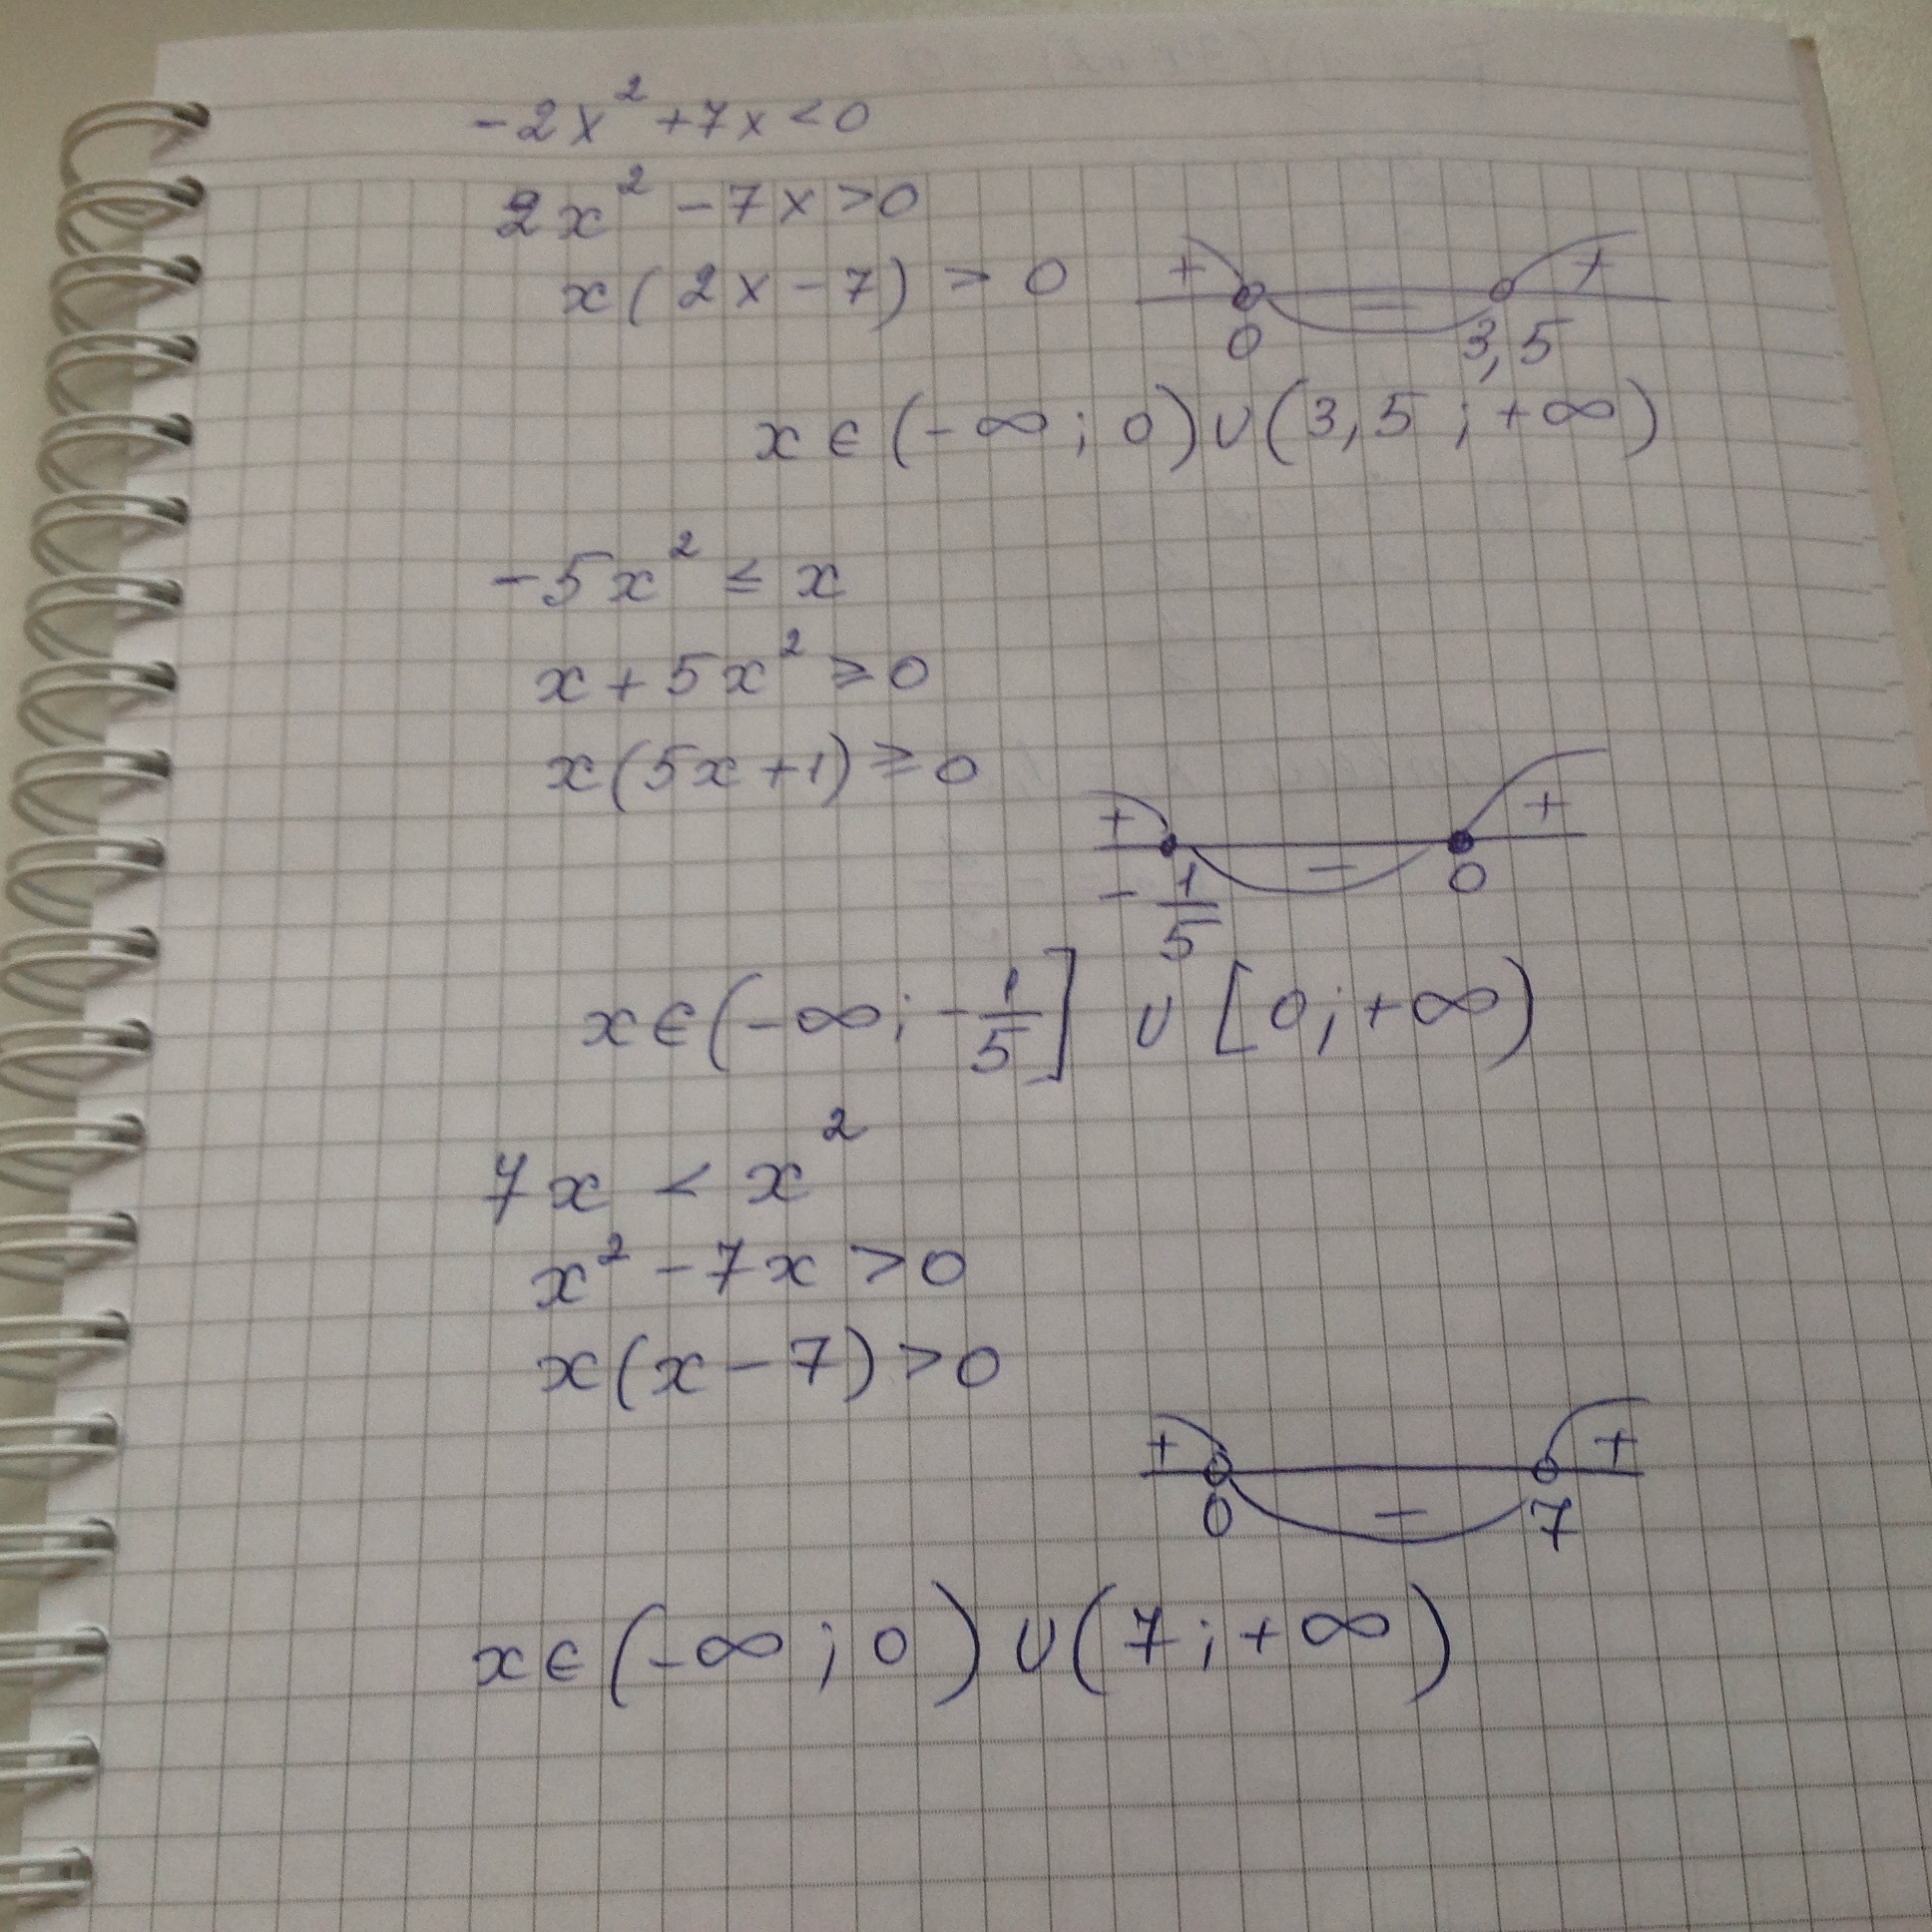 -2x² +7x<0
2x² -7x>0
x(2x-7) > 0
+ - +
0 3,5
x∈(-∞; 0)∪(3,5; +∞)
-5x² ≤ x
x+5x² ≥0
x(5x+1) ≥ 0
+ - +
-1/5 0
x∈(-∞; -1/5] ∪ [0; +∞)
7x < x²
x² -7x >0
x(x-7) >0
+ - +
0 7
x∈(-∞; 0) ∪(7; +∞)